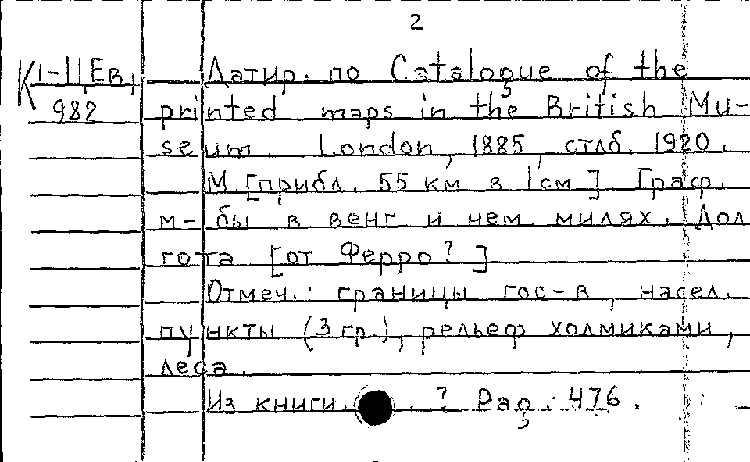 2
К 1-11 Ев. Датир. по Catalogue of the
982 printed maps in the British Mu-
seum. London, 1885, стлб. 1920.
М [прибл. 55 км в 1см] Граф.
м-бы в венг и нем милях. Дол
гота [от Ферро?]
Отмеч.: границы гос-в, насел.
пункты (3 гр.), рельеф холмиками,
леса.
Из книги. . ? Pag. 476.